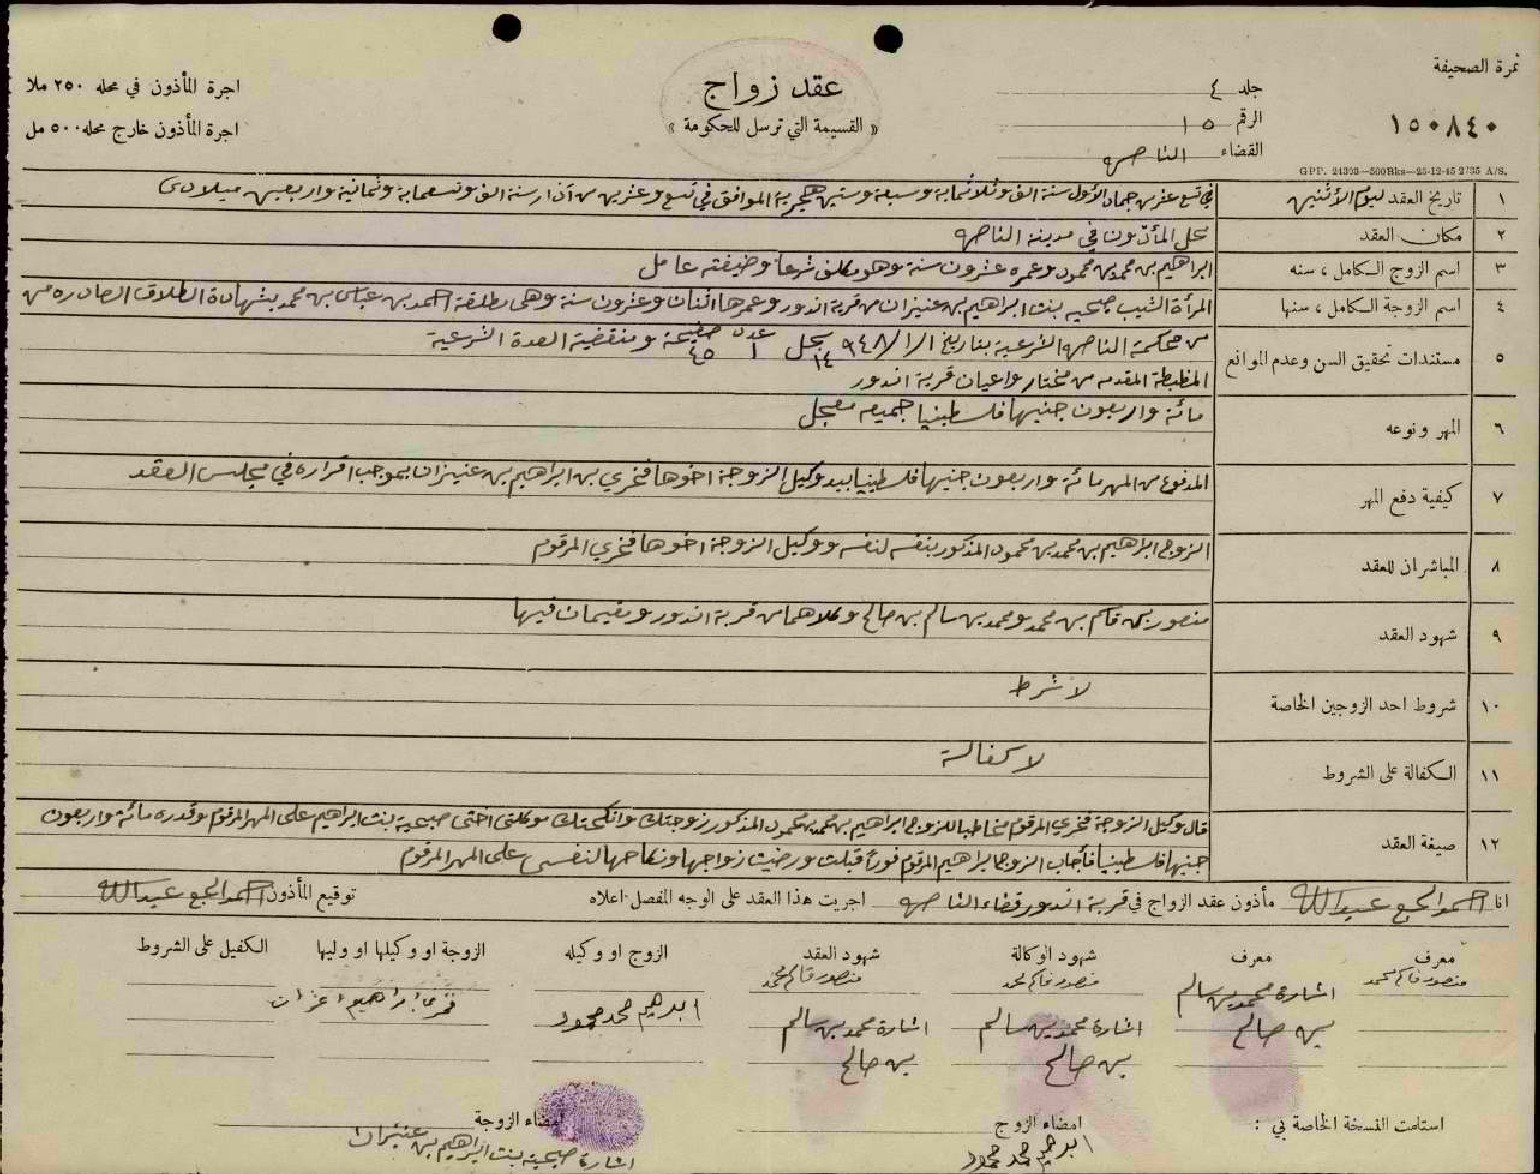 نمرة الصحيفة
١٥٠٨٤٠
جلد ٤
الرقم ١٥
القضاء الناصره
عقد زواج
« القسيمة التي ترسل للحكومة »
اجرة المأذون في محله ٢٥٠ ملا
اجرة المأذون خارج محله ٥٠٠ مل
GPP. 24303—500Bks—23-12-45 2735 A/S.
١ تاريخ العقد ليوم الأثنين في تسع عشر من جماد الأول سنة الف وثلاثماية وسبعة وستين هجرية الموافق في تسع وعشرين من آذار سنة الف وتسعماية وثمانية واربعين ميلادى
٢ مكان العقد محل المأذون في مدينة الناصره
٣ اسم الزوج الكامل ، سنه ابراهيم بن محمد بن محمود وعمره عشرون سنة وهو مكلف شرعا وظيفته عامل
٤ اسم الزوجة الكامل ، سنها المرأة الثيب صبحيه بنت ابراهيم بن عنيزان من قرية اندور وعمرها اثنان وعشرون سنة وهى مطلقة احمد بن عباس بن محمد بشهادة الطلاق الصادره من
٥ مستندات تحقيق السن وعدم الموانع من محكمة الناصره الشرعية بتاريخ ٩٤٨/١/١ سجل ١٤ عدد ١ صحيفة ٤٥ ومنقضية العدة الشرعية
المظبطة المقدمه من مختار واعيان قرية اندور
٦ المهر ونوعه مائة واربعون جنيها فلسطينيا جميعه معجل
٧ كيفية دفع المهر المدفوع من المهر مائة واربعون جنيها فلسطينيا بيد وكيل الزوجة اخوها فخري بن ابراهيم بن عنيزان بموجب اقراره في مجلس العقد
٨ المباشران للعقد الزوج ابراهيم بن محمد بن محمود المذكور بنفسه لنفسه ووكيل الزوجة اخوها فخري المرقوم
٩ شهود العقد منصور بن قاسم بن محمد ومحمد بن سالم بن صالح وكلاهما من قرية اندور ومقيمان فيها
١٠ شروط احد الزوجين الخاصة لا شرط
١١ الكفالة على الشروط لا كفالة
١٢ صيغة العقد قال وكيل الزوجة فخري المرقوم مخاطبا للزوج ابراهيم بن محمد بن محمود المذكور زوجتك وانكحتك موكلتى اختى صبحية بنت ابراهيم على المهر المرقوم وقدره مائة واربعون
جنيها فلسطينيا فأجاب الزوج ابراهيم المرقوم فورا قبلت ورضيت زواجها ونكاحها لنفسى على المهر المرقوم
انا عبدالله مأذون عقد الزواج في قرية اندور قضاء الناصره اجريت هذا العقد على الوجه المفصل اعلاه توقيع المأذون عبدالله
معرف معرف شهود الوكالة شهود العقد الزوج او وكيله الزوجة او وكيلها او وليها الكفيل على الشروط
منصور قاسم محمد اشارة محمد بن سالم منصور قاسم محمد منصور قاسم محمد
بن صالح اشارة محمد بن سالم اشارة محمد بن سالم ابراهيم محمد محمود فخري ابراهيم
بن صالح بن صالح
استلمت النسخة الخاصة بي : امضاء الزوج امضاء الزوجة
ابراهيم محمد محمود اشارة صبحية بنت ابراهيم بن عنيزان